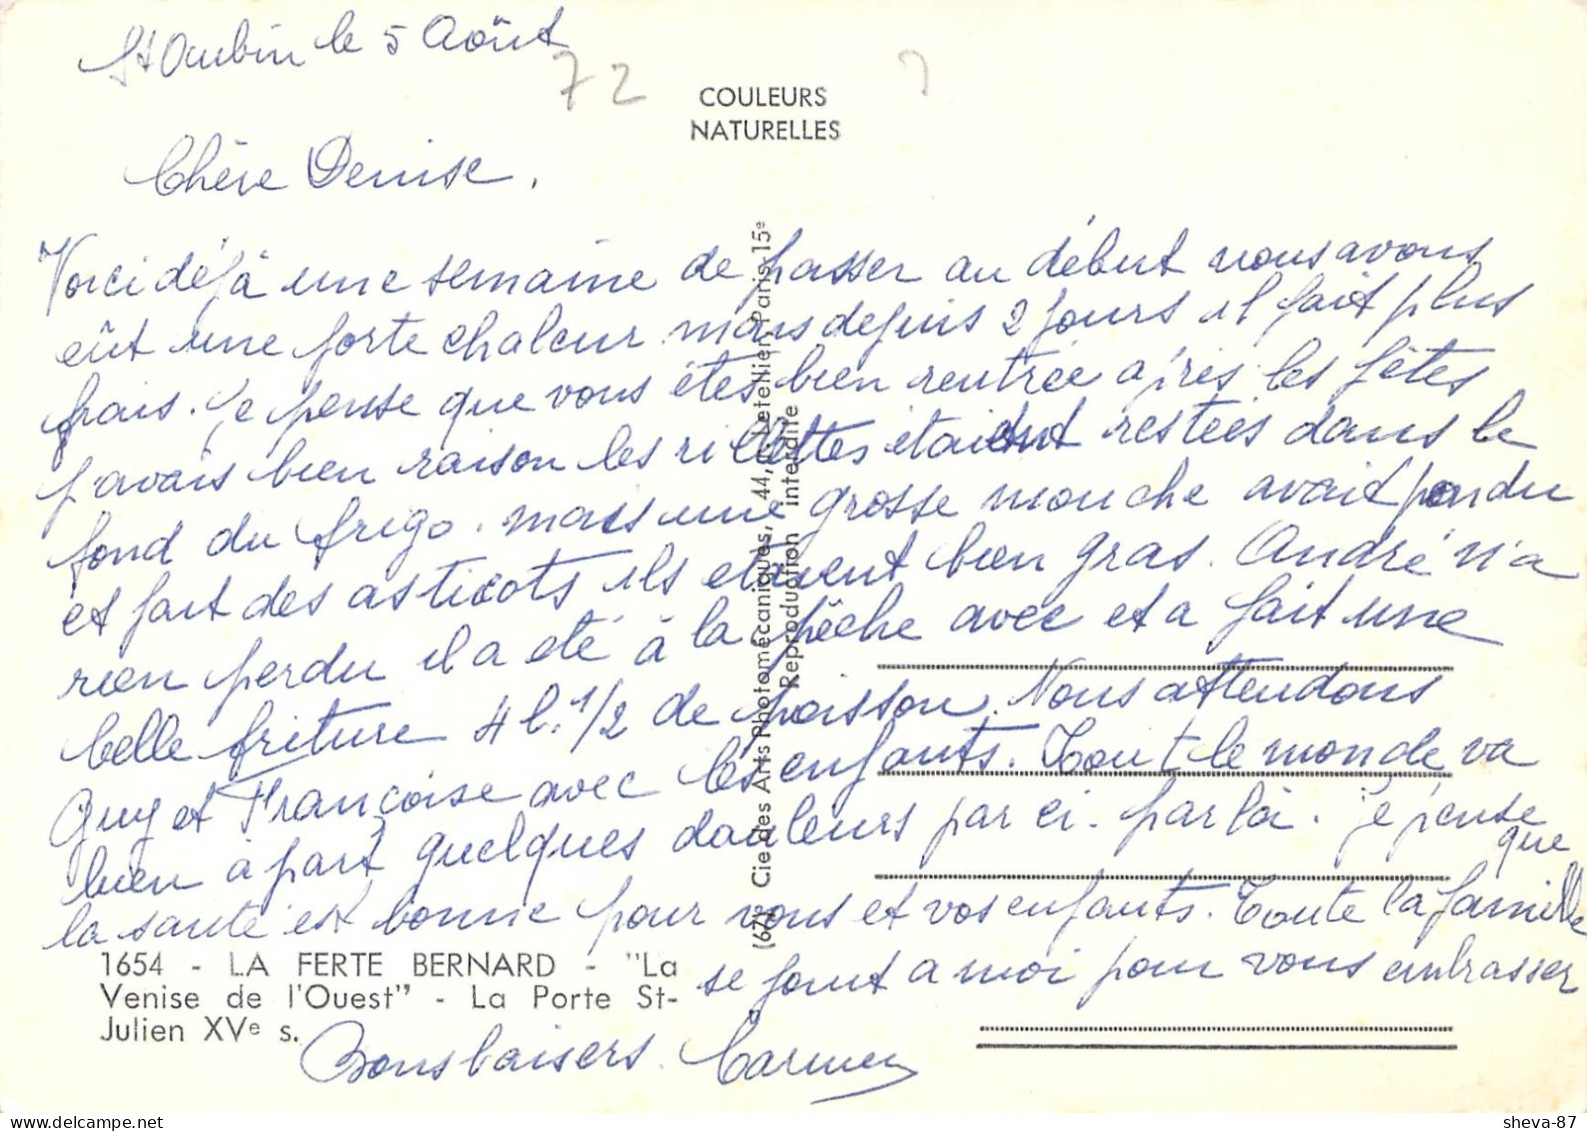 St Aubin le 5 Août
72
COULEURS
NATURELLES
Chère Denise,
Voici déjà une semaine de passer au début nous avons
eût une forte chaleur mais depuis 2 jours il fait plus
frais. Je pense que vous étes bien rentrée après les fêtes
j'avais bien raison les rillettes étaient restées dans le
fond du frigo. mais une grosse mouche avait pondu
et fait des asticots ils etaient bien gras. André n'a
rien perdu il a été à la pêche avec et a fait une
belle friture 4 l. 1/2 de poisson. Nous attendons
Guy et Françoise avec les enfants. Tout le monde va
bien à part quelques douleurs par ci. par là. je pense
que
la santé est bonne pour vous et vos enfants. Toute la famille
se joint a moi pour vous embrasser
Bons baisers. Carmen
1654 - LA FERTE BERNARD - "La
Venise de l'Ouest" - La Porte St-
Julien XVe s.
(67) Cie des Arts Photomécaniques, 44, r. Letellier, Paris-15e
Reproduction interdite
delcampe.net
sheva-87